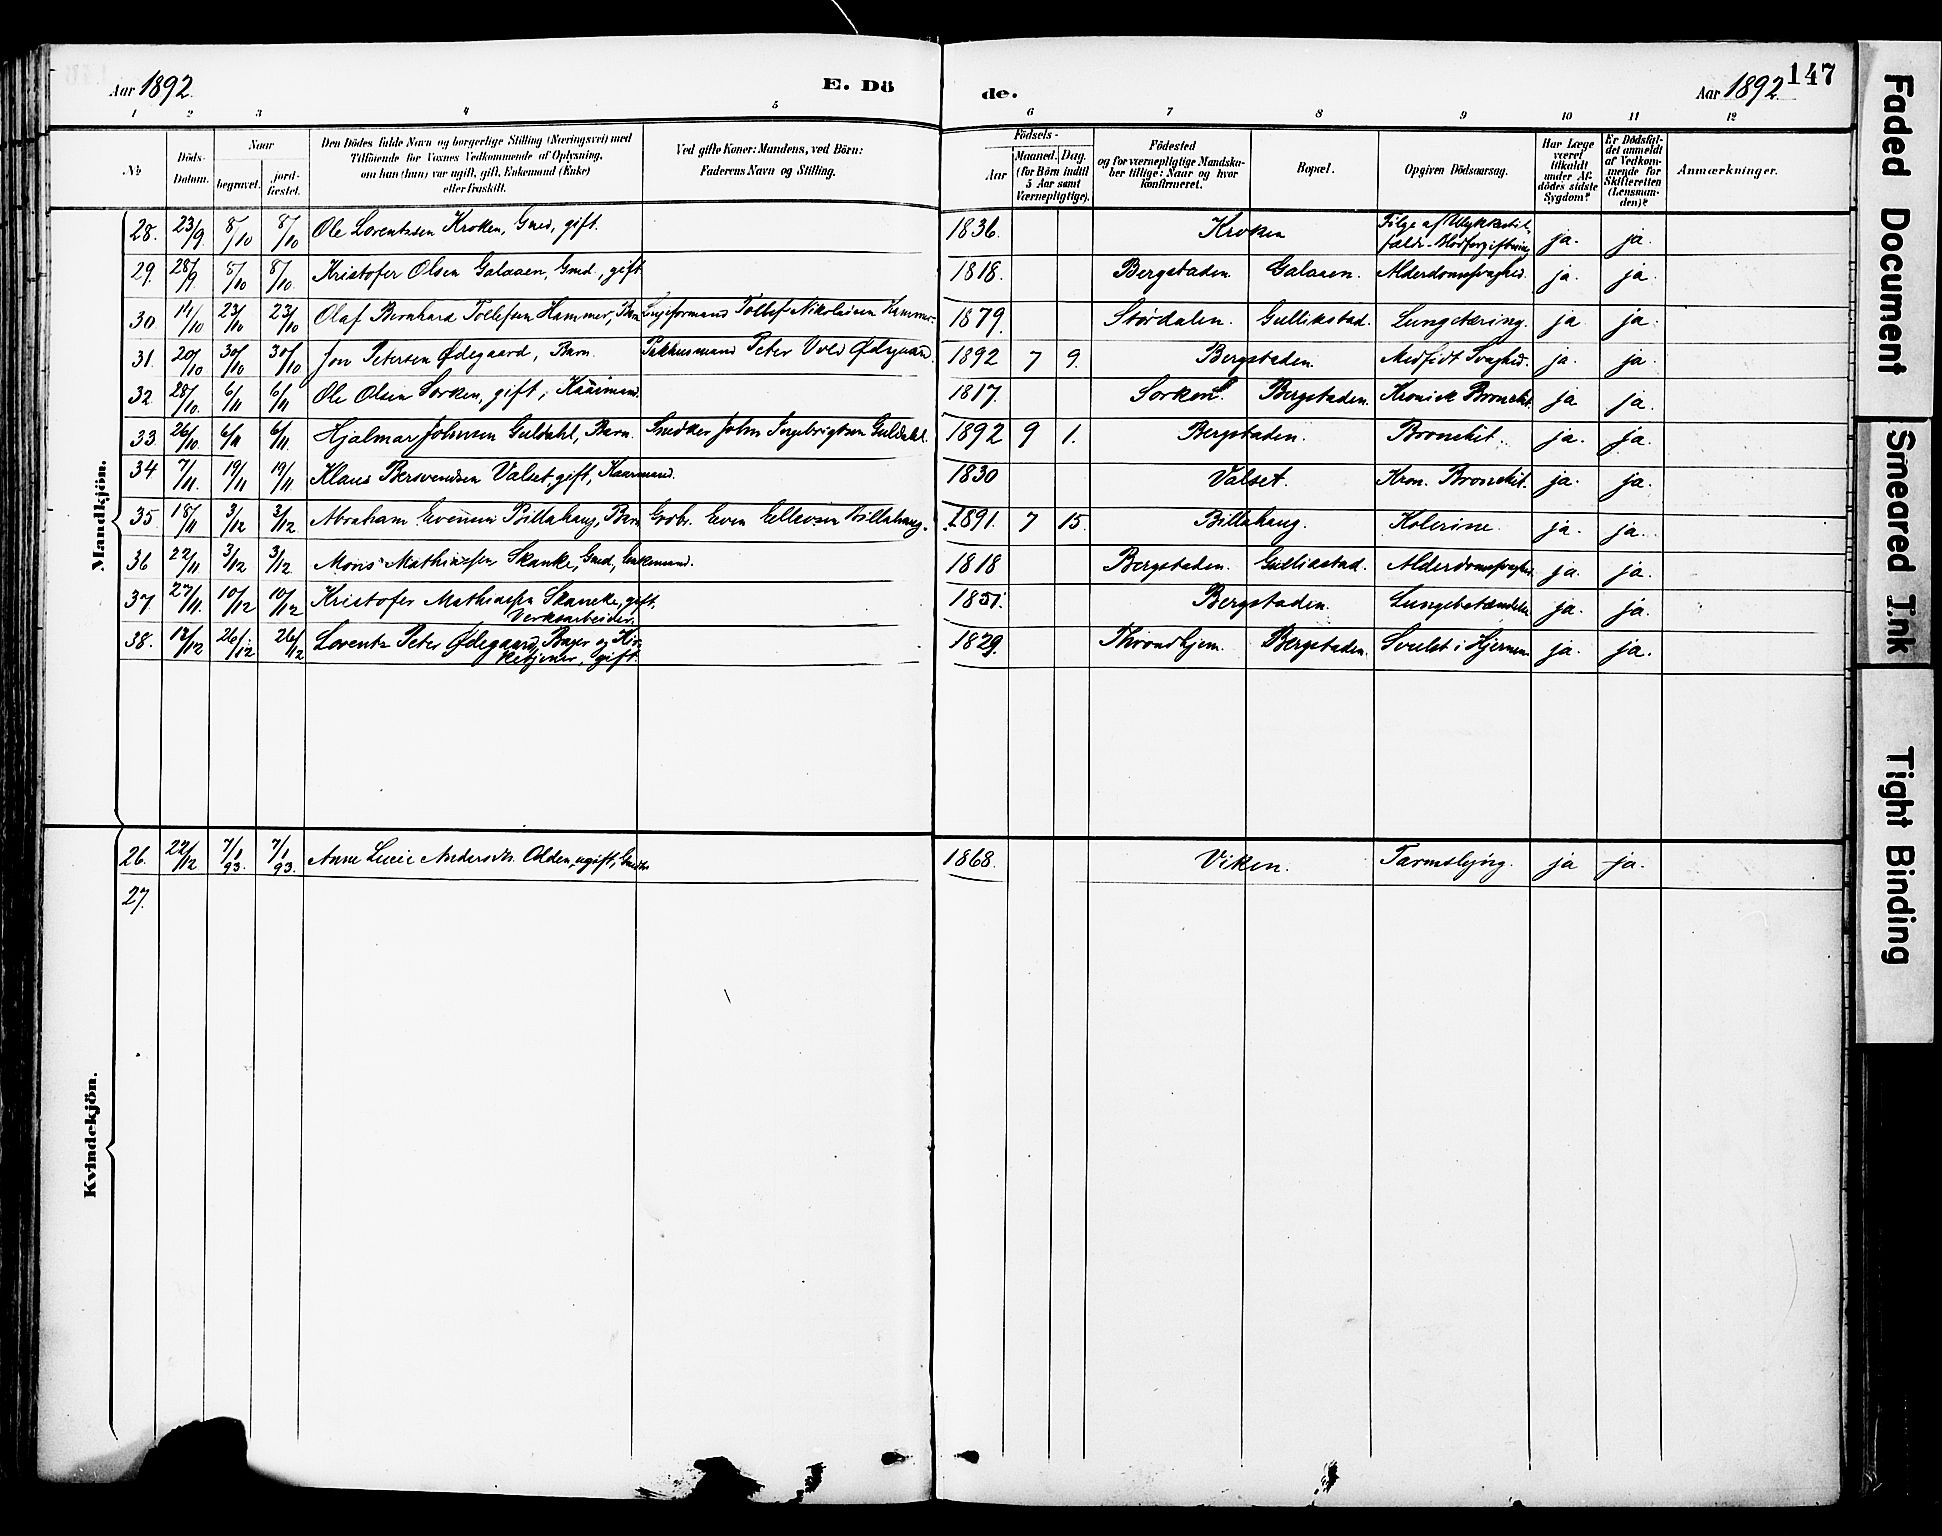 Aar 1892.
E. Dö
de.
Aar 1892.
147
1 2 3 4 5 6 7 8 9 10 11 12
No
Döds-Datum.
Naar
begravet.
jord-fæstet.
Den Dödes fulde Navn og borgerlige Stilling (Næringsvei) med
Tilföiende for Voxnes Vedkommende af Oplysning,
om han (hun) var ugift, gift, Enkemand (Enke)
eller fraskilt.
Ved gifte Koner: Mandens, ved Börn:
Faderens Navn og Stilling.
Födsels-
Aar
Maaned. Dag.
(for Börn indtil
5 Aar samt
Værnepligtige).
Födested
og for værnepligtige Mandska-
ber tillige: Naar og hvor
konfirmeret.
Bopæl.
Opgiven Dödsaarsag.
Har Læge
været
tilkaldt
under Af-
dödes sidste
Sygdom?
Er Dödsfal-
det anmeldt
af Vedkom-
mende for
Skifteretten
(Lensman-
den)?
Anmærkninger.
Mandkjön.
28. 23/9 8/10 8/10 Ole Lorentzsen Kroken, Gmd, gift. 1836. Kroken Følge af Ulykkestil-
fælde-Blodforgiftning ja. ja.
29. 28/9 8/10 8/10 Kristofer Olsen Galaaen, Gmd, gift 1818. Bergstaden. Galaaen. Alderdomssvaghed. ja. ja.
30. 11/10 23/10 23/10 Olaf Bernhard Tollefsen Hammer, Barn Tollef Nikolaisen Hammer. 1879. Stördalen. Gullikstad. Lungetæring. ja ja.
31. 20/10 30/10 30/10 Jon Petersen Ødegaard, Barn. Pakhusmand Peter Vold Ødegaard. 1892 7 9. Bergstaden. Medfødt Svaghed. ja. ja.
32. 28/10. 6/11 6/11 Ole Olsen Sorken, gift, Kaarmand. 1817. Sorken. Bergstaden. Kronisk Bronchit. ja ja.
33. 26/10 6/11 6/11. Hjalmar Johnsen Guldahl, Barn. Snedker John Ingebrigtsen Guldahl. 1892 9 1. Bergstaden. Bronchit. ja. ja.
34 7/11. 19/11 19/11 Klaus Bersvendsen Valset, gift, Kaarmand. 1830 Valset. Kron. Bronchit. ja. ja.
35. 18/11 3/12 3/12 Abraham Evensen Billahaug, Barn Grbr. Even Ellevsen Billahaug. 1891. 7 15. Billahaug. Kolerine. ja. ja.
36 22/11 3/12 3/12 Mons Mathiassen Skanke, Gmd, Enkemand. 1818 Bergstaden. Gullikstad. Alderdomssvaghed ja. ja.
37. 27/11. 10/12 10/12 Kristofer Mathiassen Skancke, gift.
Verksarbeider. 1851. Bergstaden. Lungebetændelse ja. ja.
38. 12/12 26/12 26/12 Lorentz Peter Ødegaard, Bager og Kir-
ketjener, gift. 1829. Throndhjem. Bergstaden. Svulst i Hjernen. ja. ja.
Kvindekjön.
26. 22/12 7/1 93. 7/1 93. Anne Lucie Andersdtr. Olden, ugift, 1868. Viken. Tarmslyng. ja ja.
27.
Faded Document
Smeared Ink
Tight Binding